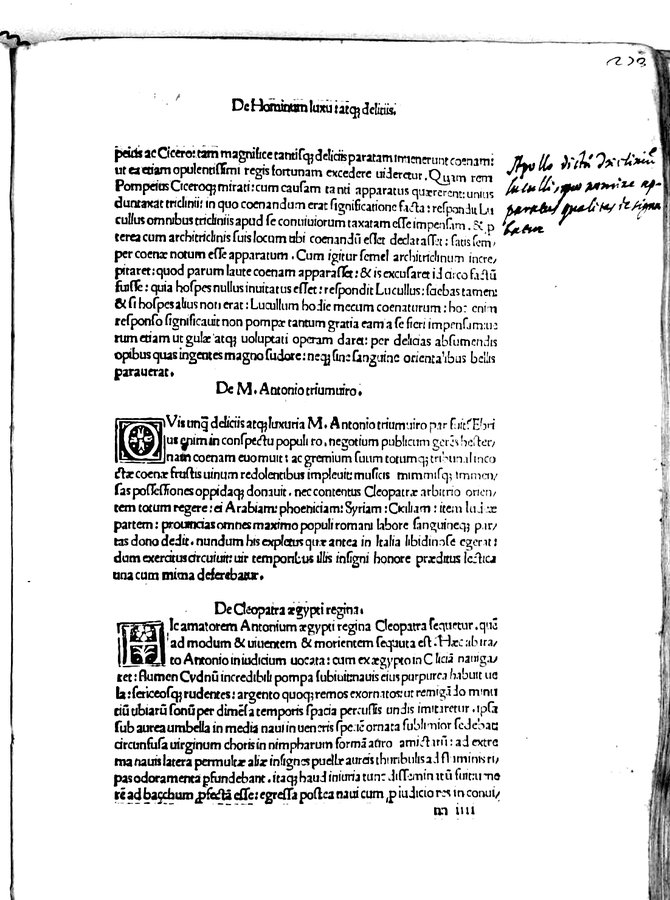 De Hominum luxu atq; delitiis.
peius ac Cicero: tam magnifice tantisq; deliciis paratam inuenerunt coenam:
ut ea etiam opulentissimi regis fortunam excedere uideretur. Quam rem
Pompeius Ciceroq; mirati: cum causam tanti apparatus quærerent: unius
duntaxat triclinii: in quo coenandum erat significatione facta: respondit Lu
cullus omnibus tricliniis apud se conuiuiorum taxatam esse impensam.
terea cum architriclinis suis locum ubi coenandū esset declarasset: satis sem/
per coenæ notum esse apparatum. Cum igitur semel architriclinum incre/
pitaret: quod parum laute coenam apparasset: & is excusaret id circo factū
fuisse: quia hospes nullus inuitatus esset: respondit Lucullus: sciebas tamen:
& si hospes alius non erat: Lucullum hodie mecum coenaturum: hoc enim
responso significauit non pompæ tantum gratia eam a se fieri impensam: ue
rum etiam ut gulæ atq; uoluptati operam daret: per delicias absumendis
opibus quas ingentes magno sudore: neq; sine sanguine orientalibus bellis
parauerat.
De M. Antonio triumuiro.
OVis unq̄ deliciis atq; luxuria M. Antonio triumuiro par fuit? Ebri
us enim in conspectu populi ro. negotium publicum gerēs hester/
nam coenam euomuit: ac gremium suum totumq; tribunal inco
ctæ coenæ frustis uinum redolentibus impleuit: musicis mimmisq; immen/
sas possessiones oppidaq; donauit. nec contentus Cleopatræ arbitrio orien/
tem totum regere: ei Arabiam: phoeniciam: Syriam: Ciciliam: item Iudeæ
partem: prouincias omnes maximo populi romani labore sanguineq; par/
tas dono dedit. nundum his expletus quæ antea in Italia libidinose egerat:
dum exercitus circuiuit: uir temporibus illis insigni honore præditus lectica
una cum mima deferebatur.
De Cleopatra ægypti regina.
HIc amatorem Antonium ægypti regina Cleopatra sequetur. quā
ad modum & uiuentem & morientem sequuta est. Hæc ab ira/
to Antonio in iudicium uocata: cum ex ægypto in Ciliciā nauiga/
ret: flumen Cydnū incredibili pompa subiuit: nauis eius purpurea habuit ue
la: sericeosq; rudentes: argento quoq; remos exornatos: ut remigādo minu
tiū tibiarū sonū per dimēsa temporis spacia percussis undis imitaretur. ipsa
sub aurea umbella in media naui in ueneris speciē ornata sublimior sedebat:
circunfusa uirginum choris in nimpharum formā
ma nauis latera permultæ aliæ insignes puellæ aureis thuribulis adstaminis
pas odoramenta ꝓfundebant. itaq; haud iniuria tunc dissemin
rē ad bacchum ꝓfectā esse: egressa postea naui cum, ꝓ iudicio res in conui/
m iiii